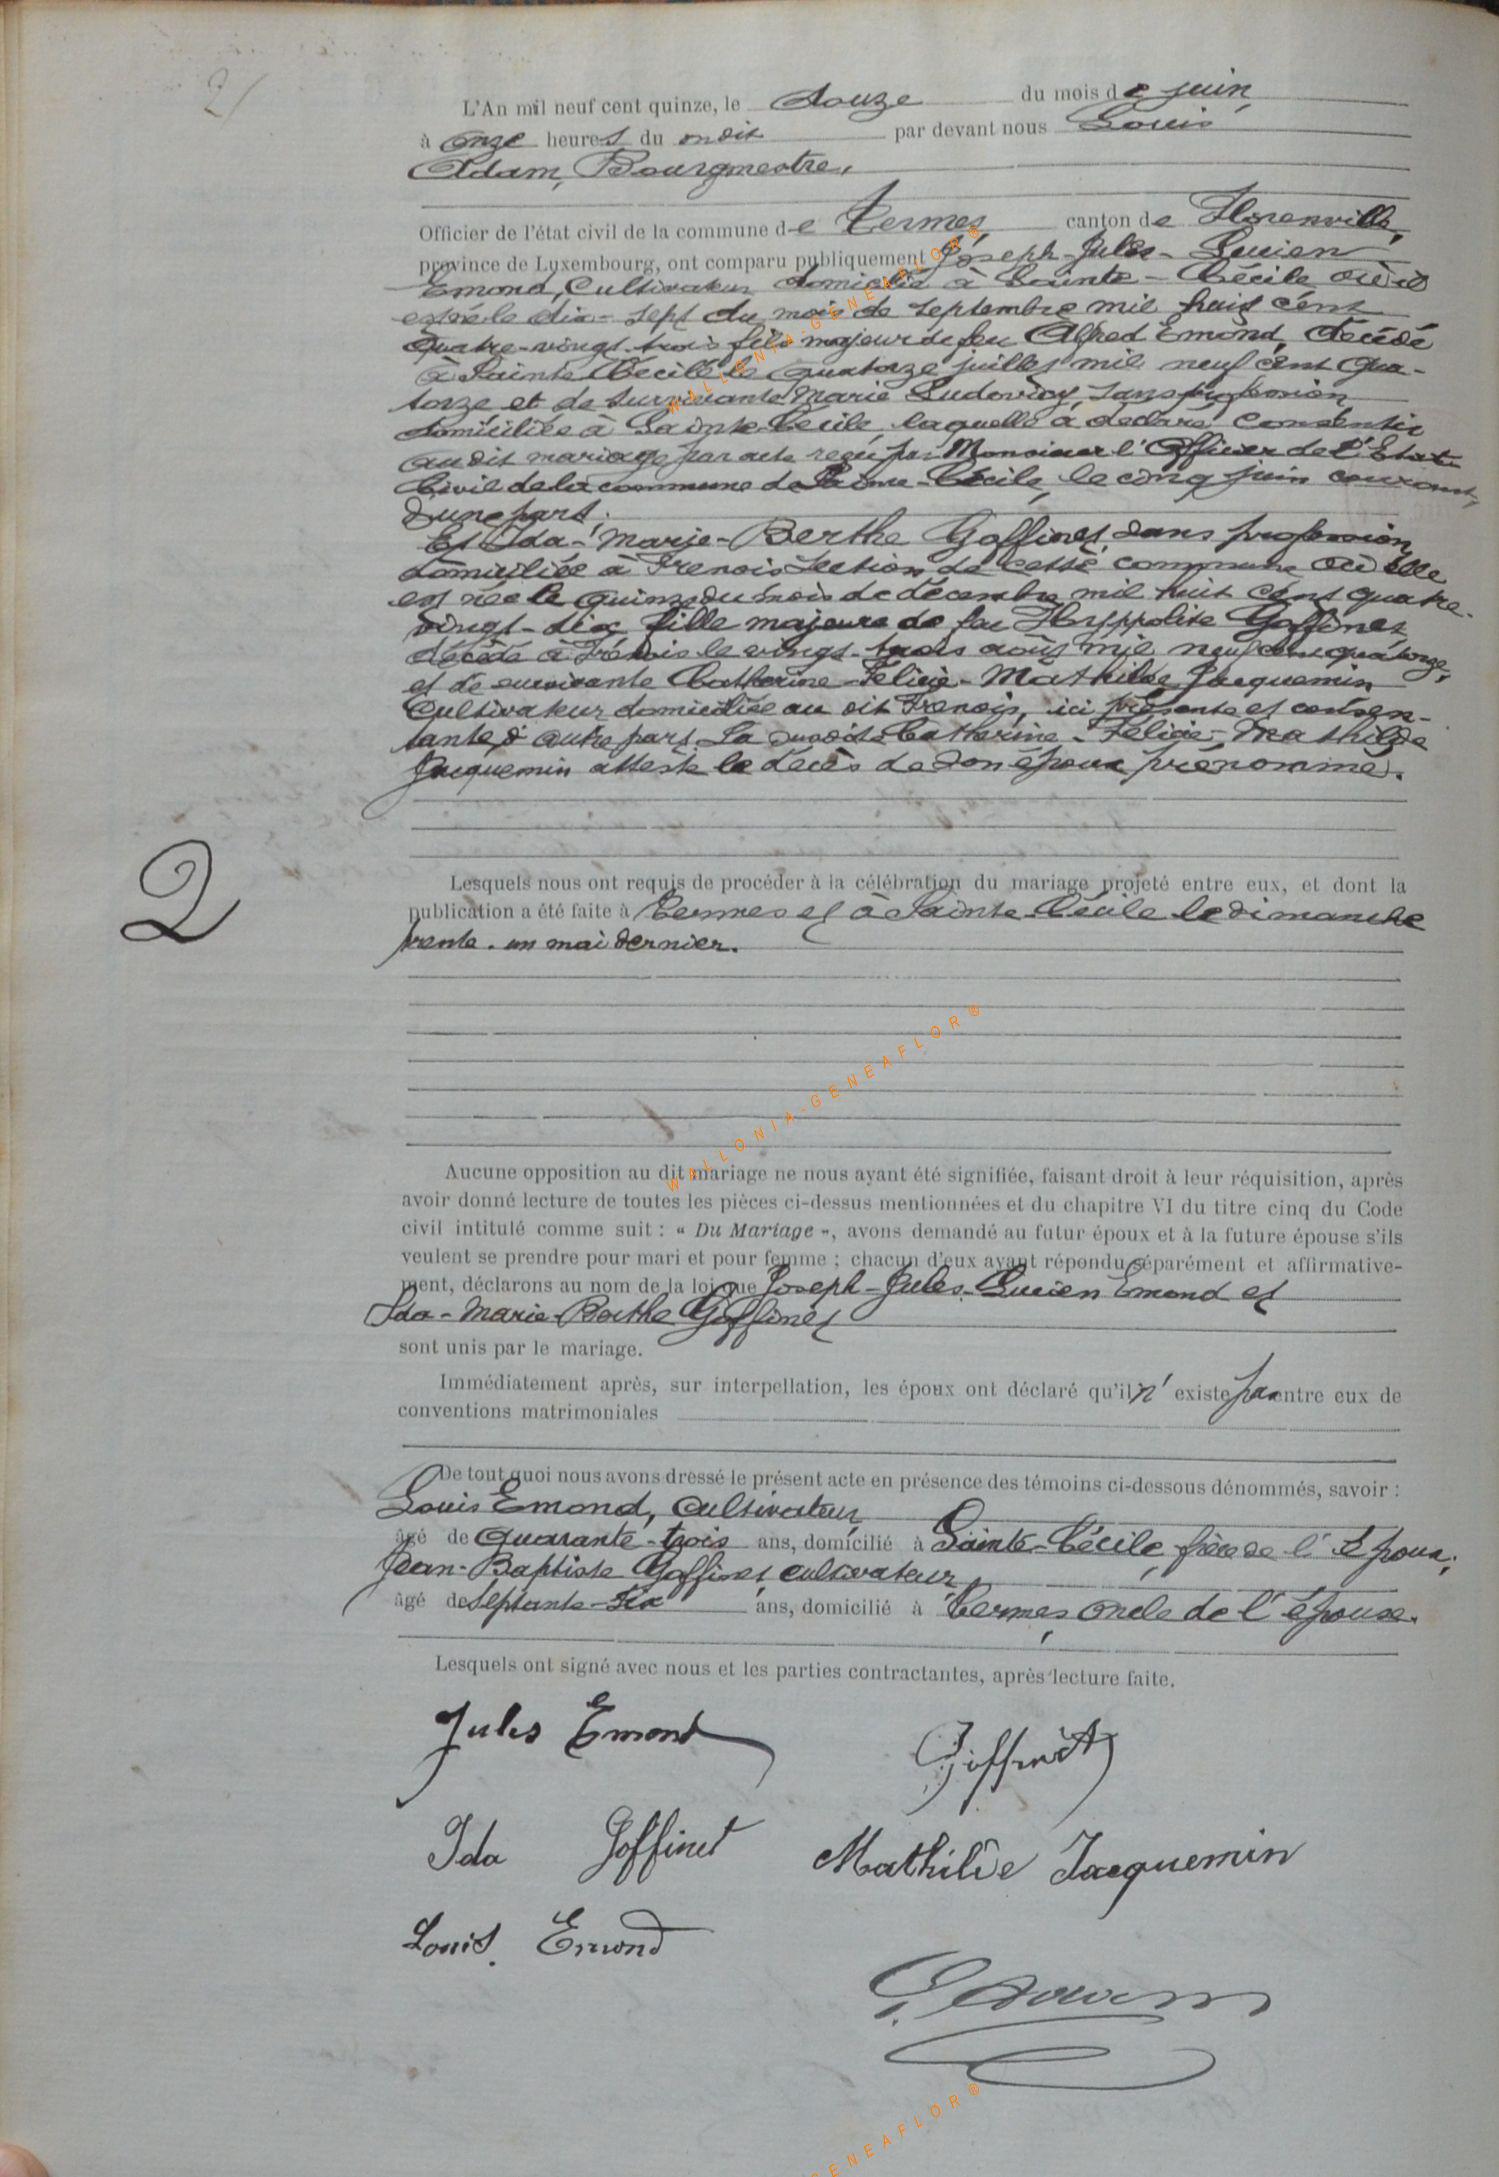 2/
L'An mil neuf cent quinze, le douze du mois de juin
à onze heures du matin par devant nous Louis
Adam, Bourgmestre,
Officier de l'état civil de la commune de Termes, canton de Florenville,
province de Luxembourg, ont comparu publiquement Joseph-Jules-Lucien
Emond, Cultivateur domicilié à Sainte-Cécile où il
est né le dix-sept du mois de septembre mil huit cent
quatre-vingt-trois fils majeur de feu Alfred Emond, décédé
à Sainte Cécile le quatorze juillet mil neuf cent qua-
torze et de survivante Marie Ludovicy, sans profession
domiciliée à Sainte-Cécile, laquelle a déclaré consentir
au dit mariage par acte reçu par Monsieur l'Officier de l'Etat-
Civil de la commune de Sainte-Cécile, le cinq juin courant,
d'une part;
Et Ida-Marie-Berthe Goffinet, sans profession,
domiciliée à Frenois section de cette commune où elle
est née le quinze du mois de décembre mil huit cent quatre-
vingt-dix fille majeure de feu Hyppolite Goffinet,
décédé à Frenois le vingt-trois août mil neuf cent quatorze,
et de survivante Catherine-Félicie-Mathilde Jacquemin
Cultivateur domiciliée au dit Frenois, ici présente et consen-
tante d'autre part. La susdite Catherine-Félicie-Mathilde
Jacquemin atteste le décès de son époux prénommé.
2
Lesquels nous ont requis de procéder à la célébration du mariage projeté entre eux, et dont la
publication a été faite à Termes et à Sainte-Cécile le dimanche
trente-un mai dernier.
Aucune opposition au dit mariage ne nous ayant été signifiée, faisant droit à leur réquisition, après
avoir donné lecture de toutes les pièces ci-dessus mentionnées et du chapitre VI du titre cinq du Code
civil intitulé comme suit : « Du Mariage », avons demandé au futur époux et à la future épouse s'ils
veulent se prendre pour mari et pour femme ; chacun d'eux ayant répondu séparément et affirmative-
ment, déclarons au nom de la loi que Joseph-Jules-Lucien Emond et
Ida-Marie-Berthe Goffinet
sont unis par le mariage.
Immédiatement après, sur interpellation, les époux ont déclaré qu'il n'existe pas entre eux de
conventions matrimoniales
De tout quoi nous avons dressé le présent acte en présence des témoins ci-dessous dénommés, savoir :
Louis Emond, Cultivateur
âgé de quarante-trois ans, domicilié à Sainte-Cécile, frère de l'époux;
Jean-Baptiste Goffinet, cultivateur,
âgé de septante-six ans, domicilié à Termes, oncle de l'épouse.
Lesquels ont signé avec nous et les parties contractantes, après lecture faite.
Jules Emond
Goffinet
Ida Goffinet
Mathilde Jacquemin
Louis. Emond
L Adam
WALLONIA-GENEAFLOR®
WALLONIA-GENEAFLOR®
GENEAFLOR®